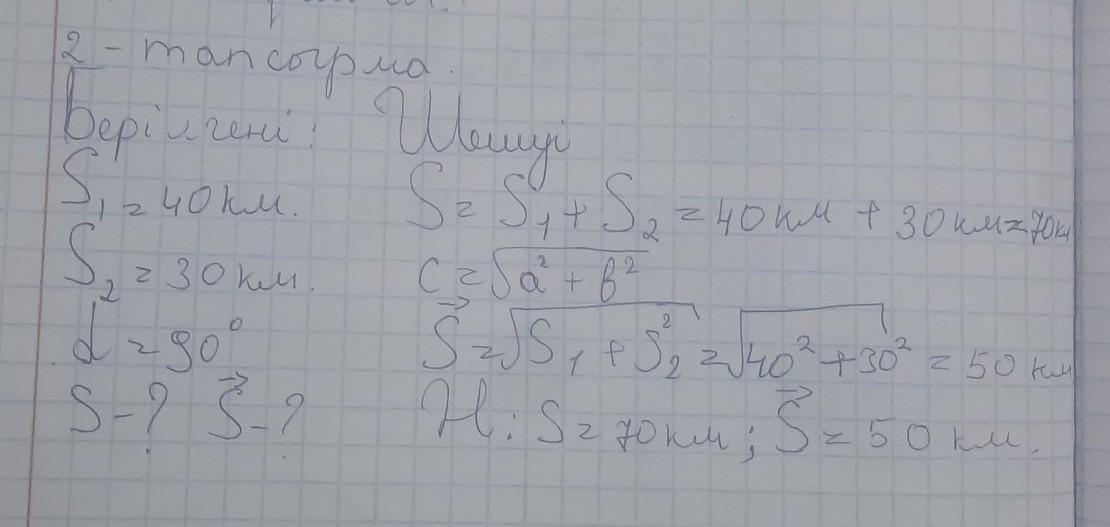 2 - тапсырма.
Берілгені: Шешуі
S₁ = 40 км. S = S₁ + S₂ = 40 км + 30 км = 70 км
S₂ = 30 км. c = √a² + b²
d = 90° S⃗ = √S₁ + S₂² = √40² + 30² = 50 км
S - ? S⃗ - ? H: S = 70 км; S⃗ = 50 км.